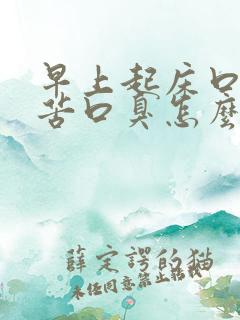 早上起床口
苦口臭怎麼
薛定諤的猫
未经同意禁止转载